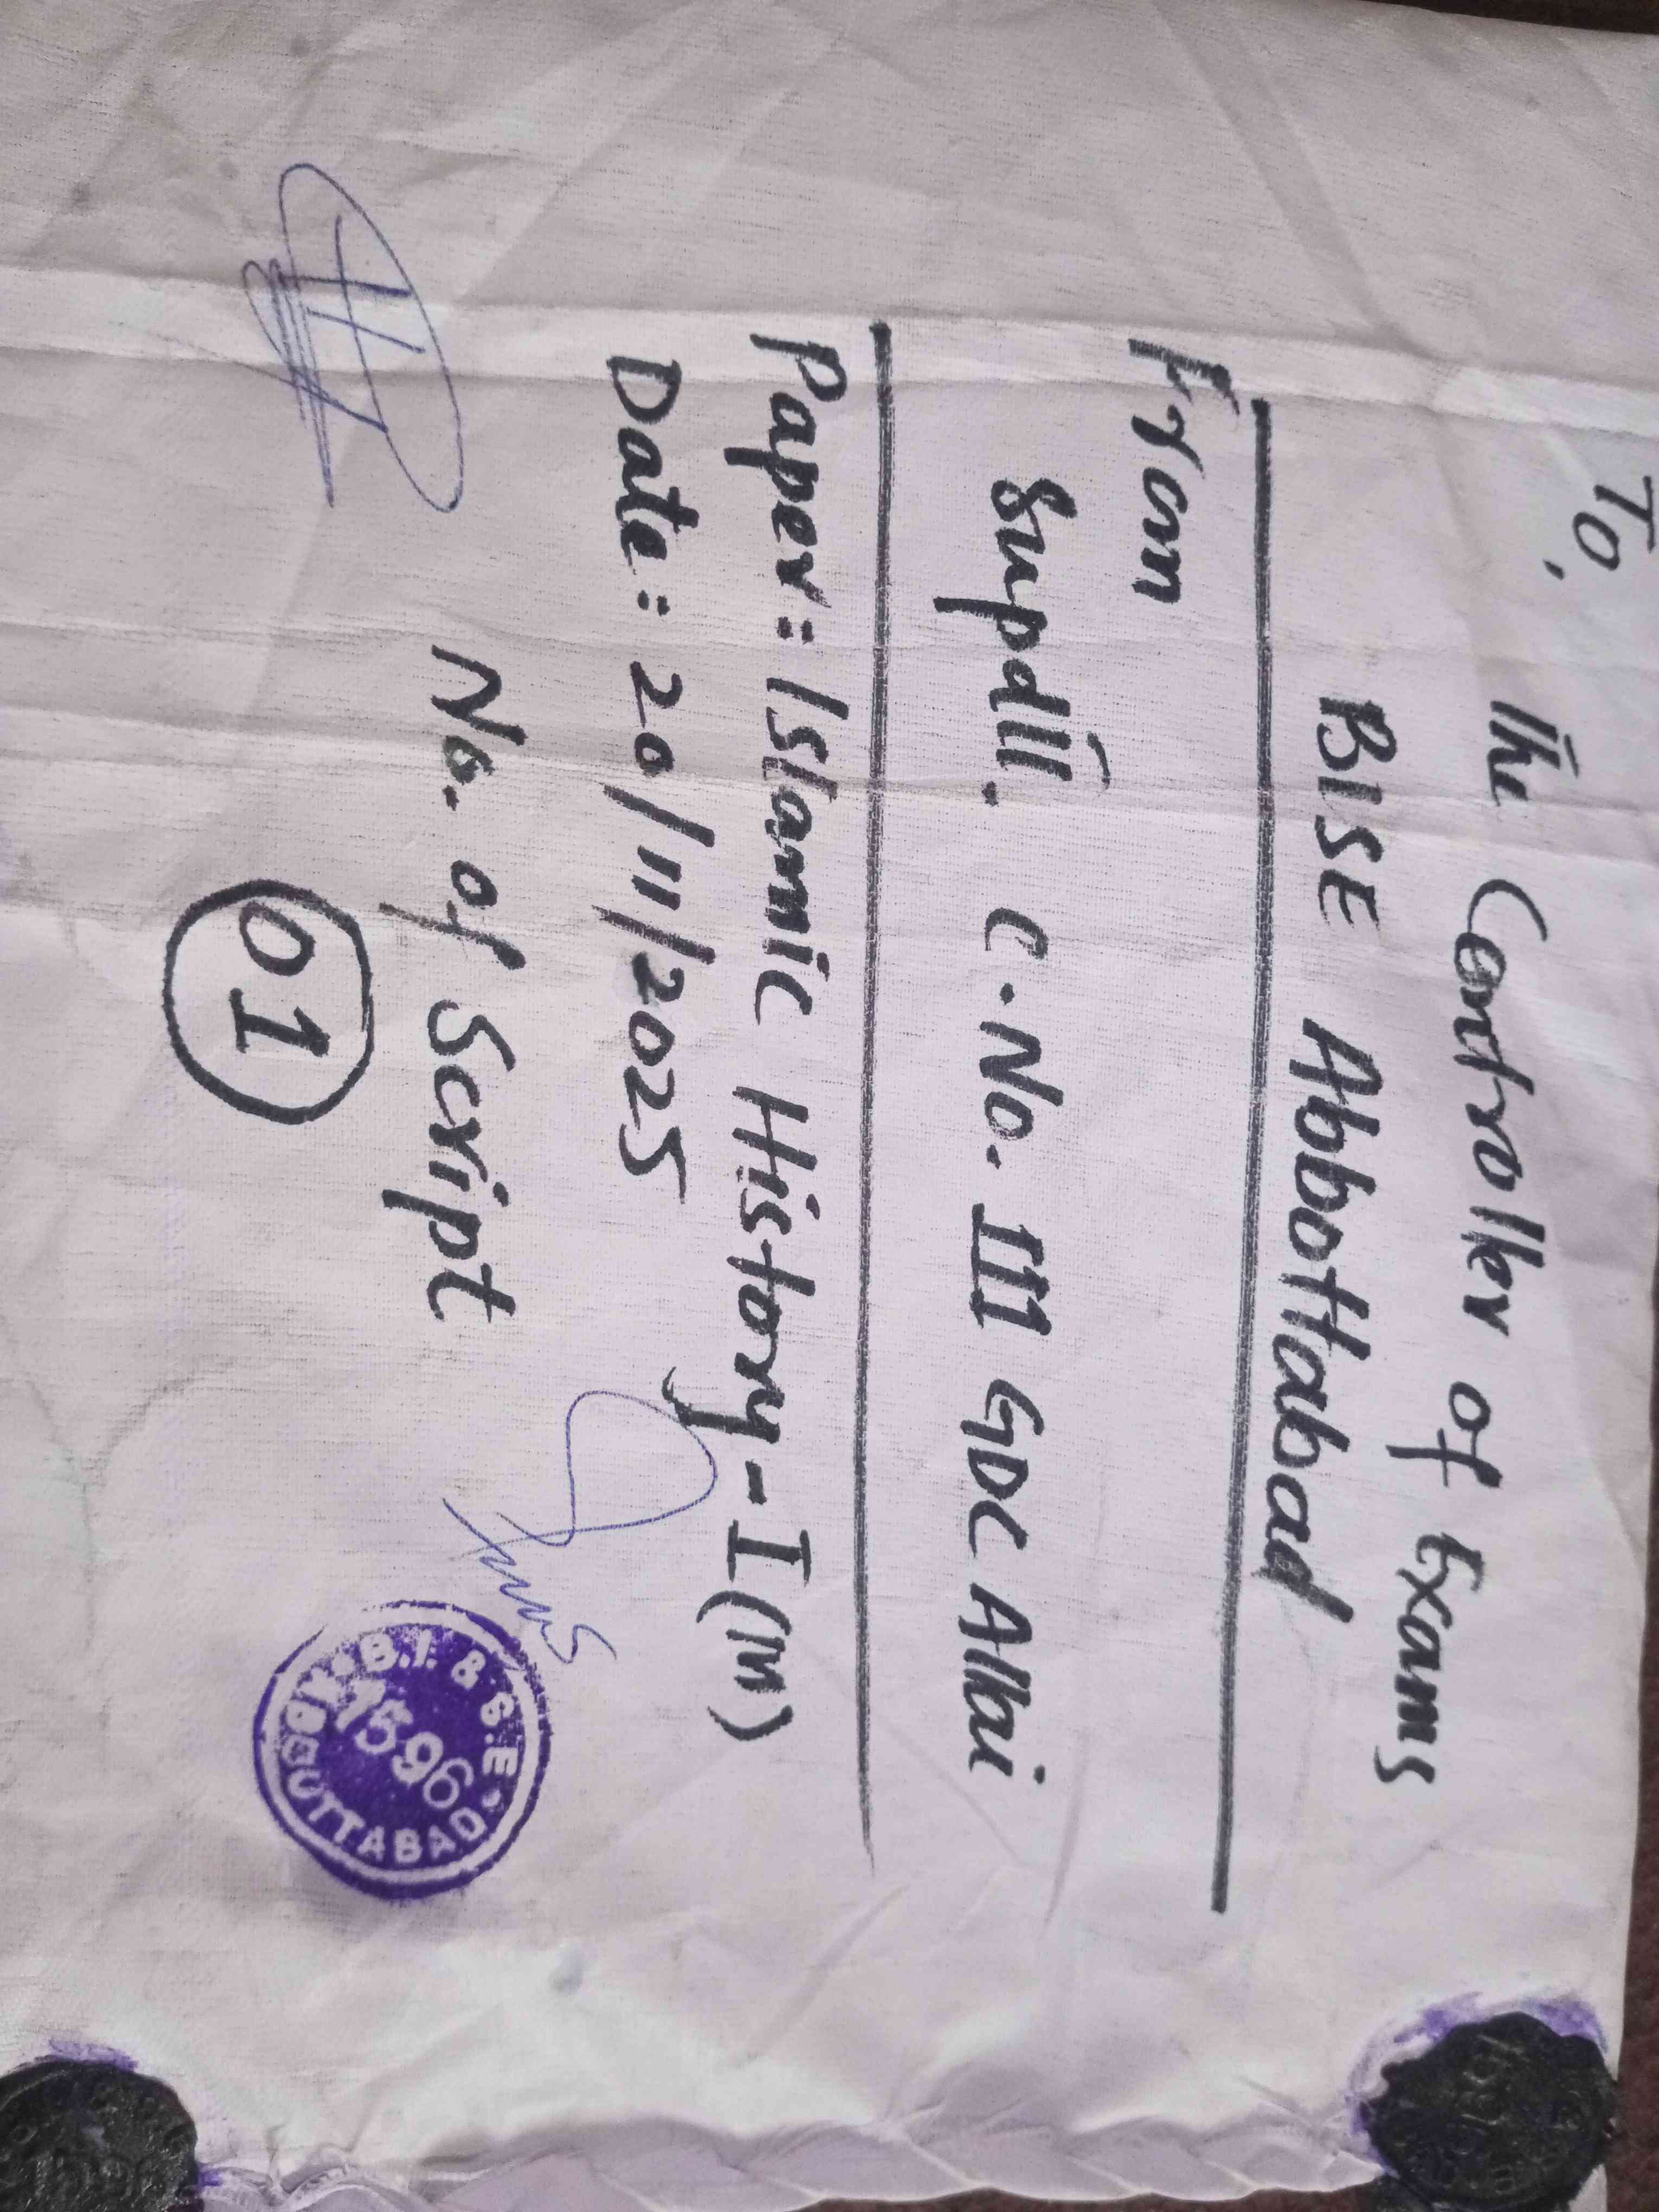 To,
The Controller of Exams
BISE Abbottabad
From
Supdtt. C.No. III GDC Allai
Paper: Islamic History-I (M)
Date: 20/11/2025
No. of Script
01
B.I. & S.E.
7596